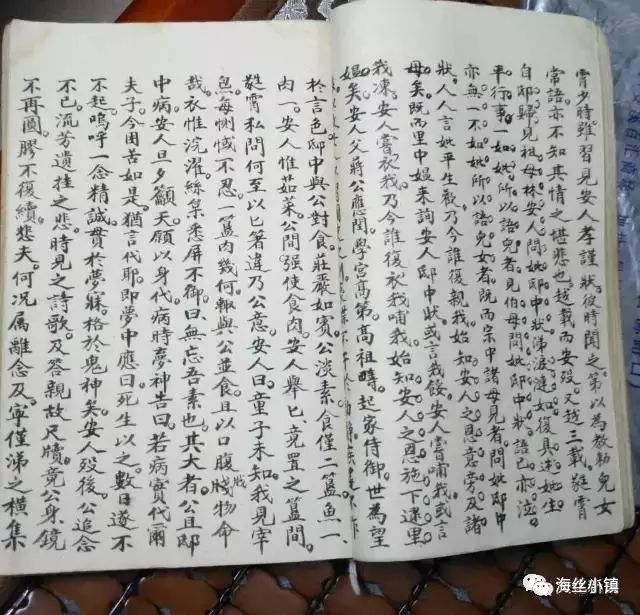 霄少時雖習見安人孝謹狀彼時聞之第以為教勑兒女
常語亦不知其情之堪悲也越載而安歿又越三載霄
自邸歸見祖母林安人問她邸中狀涕淚漣如復具述她生
平行事一如她所以語兒女者見伯母問她邸中狀語已亦泣
亦無一不如她所以語兒女者既而宗中諸母見者問她邸中
狀人人言她平生歡乃今誰復親我始知安人之恩意旁及諸
母矣既而里中媪来詢安人邸中狀或言我餒安人嘗哺我或言
我凍安人嘗衣我乃今誰復衣我哺我始知安人之恩施下逮里
媪矣安人父蔣公應閏學宮高第高祖時起家侍御世為望
於言色邸中與公對食莊嚴如賓公淡素食僅二簋魚一
肉一安人惟茹菜公間强使食肉安人舉匕竟置之簋間
霄私問何至以匕箸違乃公意安人曰童子未知我見宰
魚每惻不忍一簋肉幾何輒與公並食且以口腹戕賤物命
哉衣惟浣濯絲枲悉屏不御曰無忘吾素也其大者公且邸
中病安人旦夕籲天願以身代病時夢神告曰若病實代爾
夫子今困苦如是猶言代耶即夢中應曰死生以之數日遂不
不起嗚呼一念精誠貫於夢寐格於鬼神矣安人歿後公追念
不已流芳遺挂之悲時見之詩歌及答親故尺牘竟公身鏡
不再圓膠不復續悲夫何況属離念及寧僅涕之橫集
海丝小镇